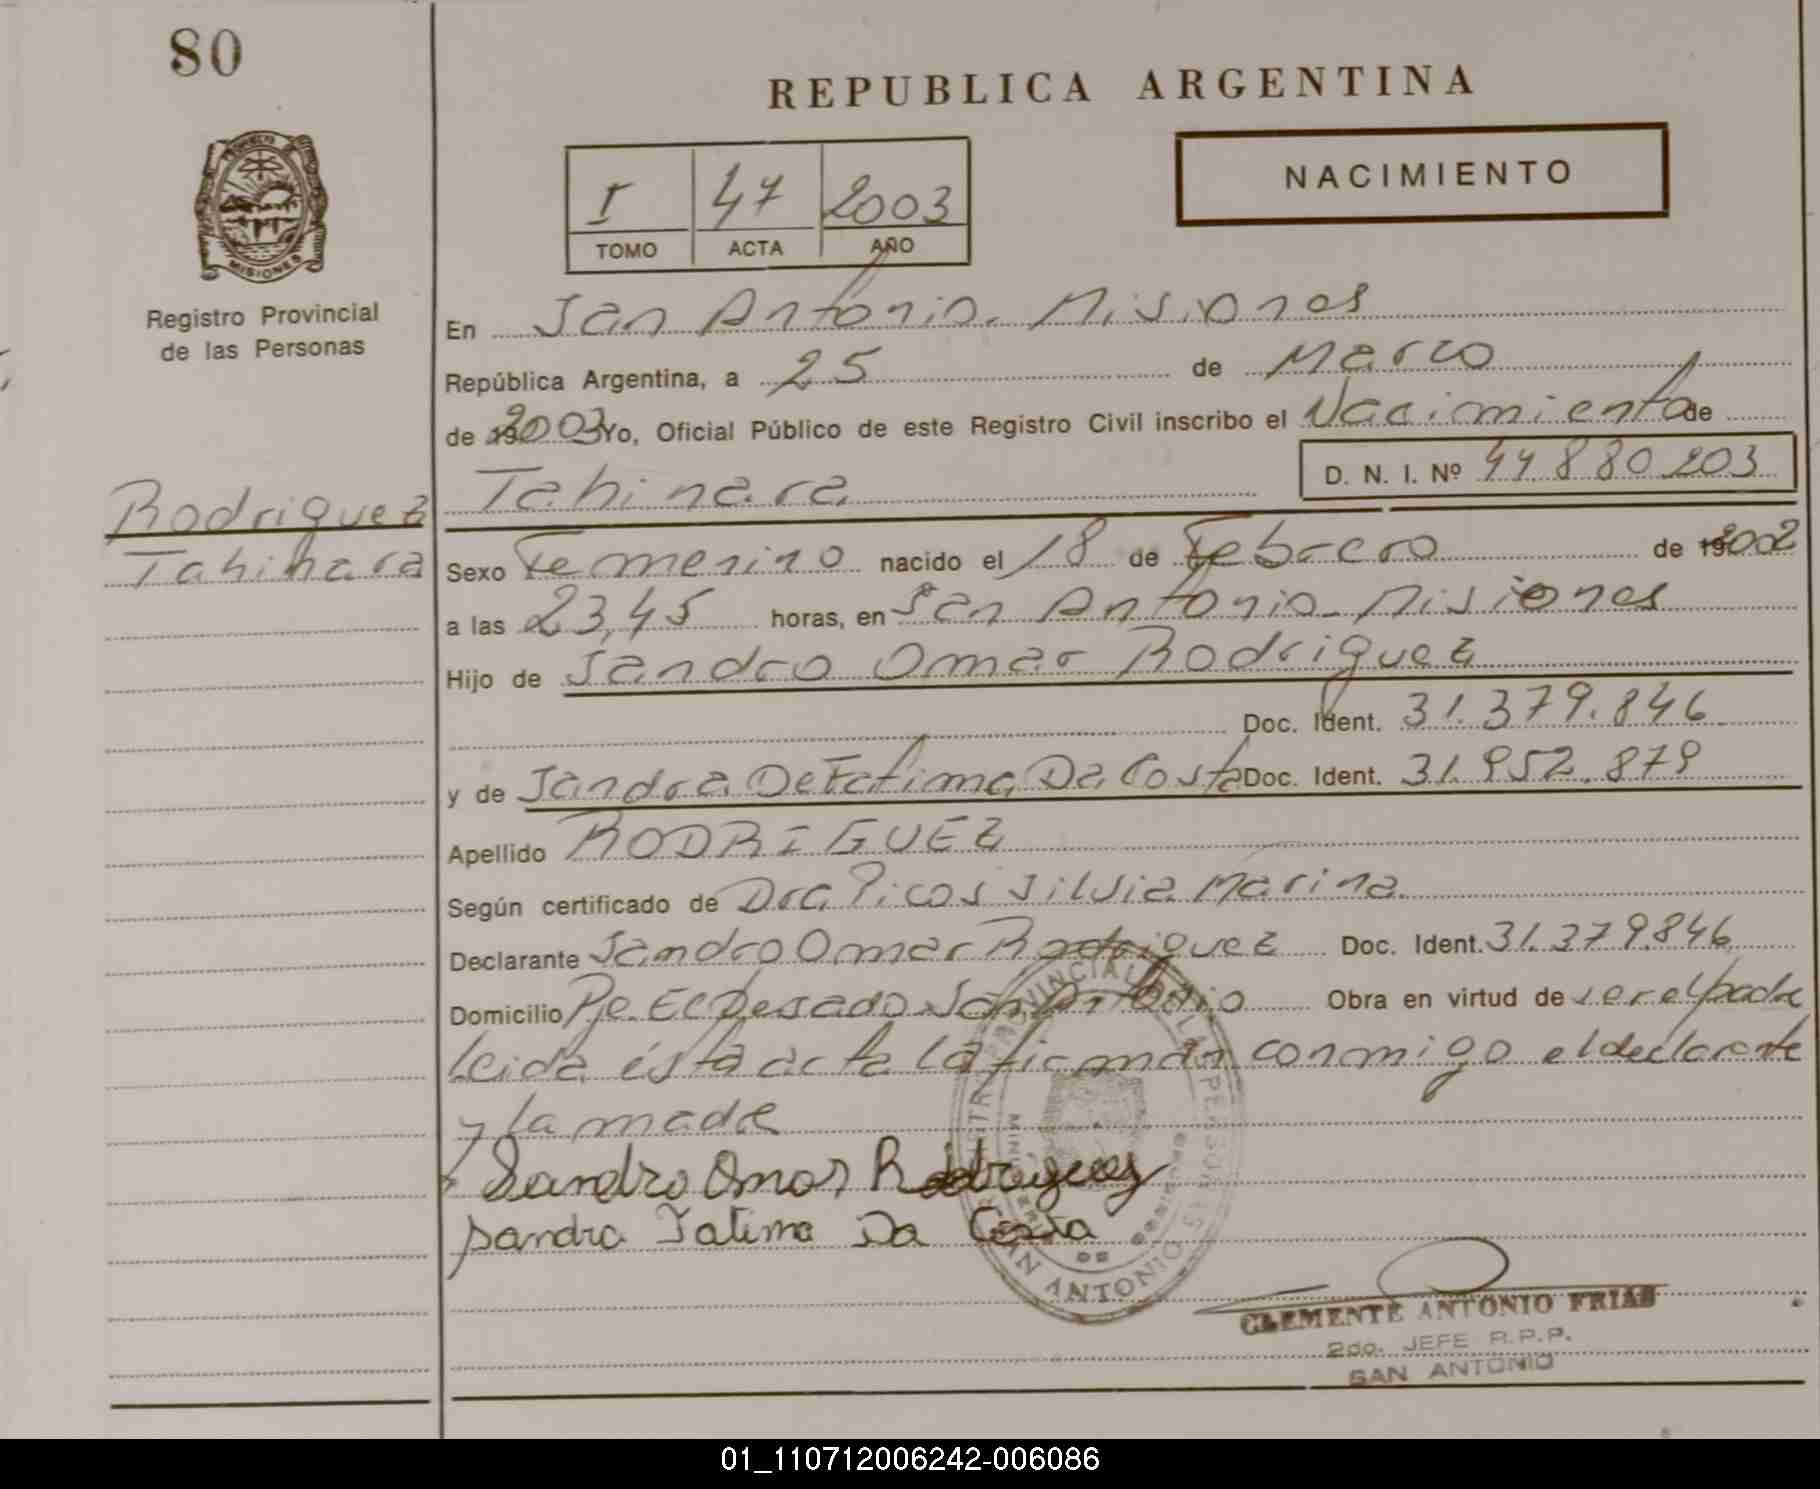 80
REPUBLICA ARGENTINA
NACIMIENTO
I 47 2003
TOMO ACTA AÑO
MISIONES
Registro Provincial
de las Personas
En San Antonio. Misiones
República Argentina, a 25 de Marzo
de 2003 Yo, Oficial Público de este Registro Civil inscribo el Nacimiento de
Tahinara D. N. I. Nº 44.880.203
Rodriguez
Tahinara
Sexo Femenino nacido el 18 de Febrero de 2002
a las 23,45 horas, en San Antonio - Misiones
Hijo de Sandro Omar Rodriguez
Doc. Ident. 31.379.846
y de Sandra De Fatima Da Costa Doc. Ident. 31.952.879
Apellido RODRIGUEZ
Según certificado de Dra Picos Silvia Marina
Declarante Sandro Omar Rodriguez Doc. Ident. 31.379.846
Domicilio Pje. El Pesado San Antonio Obra en virtud de ser el padre
Leida ésta acta la firman conmigo el declarante
y la madre
Sandro Omar Rodriguez
Sandra Fatima Da Costa
SAN ANTONIO
CLEMENTE ANTONIO FRIAS
2do. JEFE R.P.P.
SAN ANTONIO
01_110712006242-006086